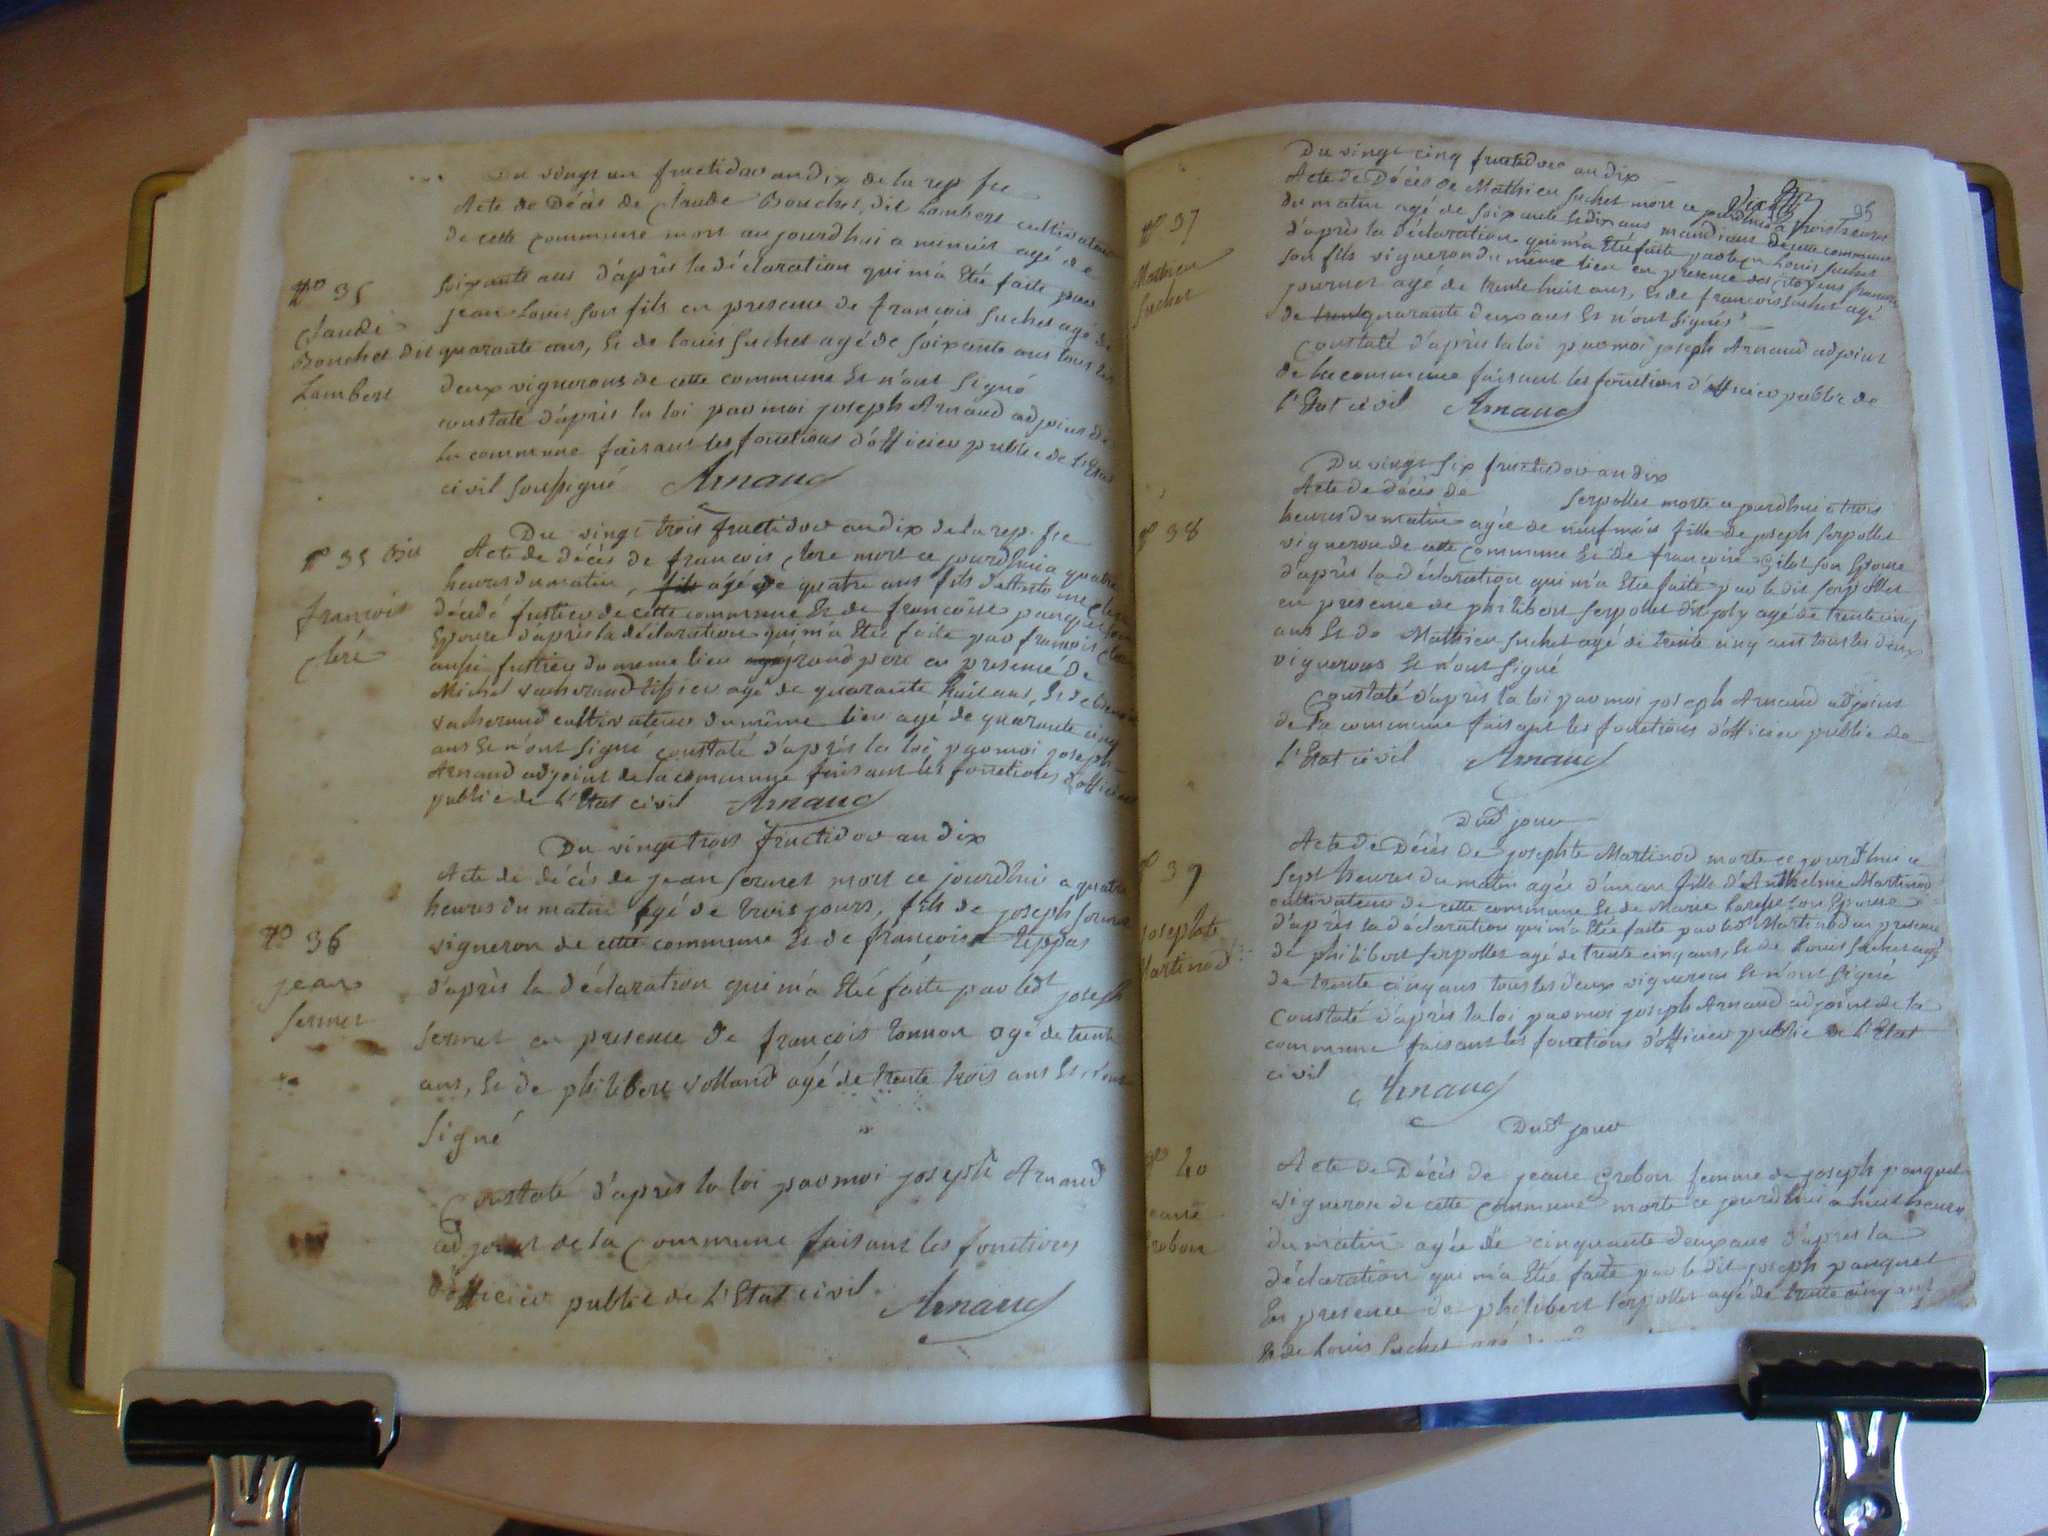 Du vingt un fructidor an dix de la rep fse
Acte de Décès de Claude Bouchet, dit Lambert cultivateur
de cette commune mort aujourdhui a minuit agé de
N° 35
soixante ans d'après la déclaration qui m'a Eté faite par
Claude
jean Louis son fils en presence de françois Suchet agé de
Bouchet dit
quarante ans, Et de louis Suchet agé de soixante ans tous les
Lambert
deux vignerons de cette commune Et n'ont signé
constaté d'après la loi par moi joseph Arnaud adjoint de
la commune faisant les fonctions d'officier public de l'Etat
civil soussigné Arnaud
Du vingt trois fructidor an dix de la rep. fse
N° 35 Bis
Acte de décès de francois Clere mort ce jourdhui a quatre
heures du matin, agé de quatre ans fils d'Antoine
françois
décédé de cette commune Et de francoise
Cleré
Epouse d'après la déclaration qui m'a Eté faite par francois
aussi du meme lieu grand pere en presence de
Michel vacherand agé de quarante huit ans, Et de
vacherand cultivateur du même lieu agé de quarante cinq
ans Et n'ont signé constaté d'après la loi par moi joseph
Arnaud adjoint de la commune faisant les fonctions d'officier
public de l'Etat civil Arnaud
Du vingt trois fructidor an dix
Acte de décès de jean sermet mort ce jourdhui a quatre
heures du matin agé de trois jours, fils de joseph sermet
N° 36
vigneron de cette commune Et de francoise
jean
d'après la déclaration qui m'a Eté faite par ledt joseph
sermet
sermet en presence de françois tonnon agé de trente
ans, Et de philibert volland agé de trente trois ans Et n'ont
signé
Constaté d'après la loi par moi joseph Arnaud
adjoint de la Commune faisant les fonctions
d'officier public de l'Etat civil. Arnaud
95
Du vingt cinq fructidor an dix
Acte de Décès de Mathieu Suchet mort ce jourdhui a trois heures
N° 37
du matin agé de soixante Et dix ans mandiant de cette commune
d'après la déclaration qui m'a Eté faite par Louis Suchet
Mathieu
son fils vigneron du même lieu en presence des Citoyens francois
Suchet
journet agé de trente huit ans, Et de francois Suchet agé
de trente quarante deux ans Et n'ont signés
Constaté d'après la loi par moi joseph Arnaud adjoint
de la commune faisant les fonctions d'officier public de
l'Etat civil Arnaud
Du vingt six fructidor an dix
Acte de décès de serpollet morte ce jourdhui a trois
N° 38
heures du matin agée de neuf mois fille de joseph serpollet
vigneron de cette commune Et de francoise son Epouse
d'après la déclaration qui m'a Eté faite par le dit serpollet
en presence de philibert serpollet dit joly agé de trente cinq
ans Et de Mathieu Suchet agé de trente cinq ans tous les deux
vignerons Et n'ont signé
Constaté d'après la loi par moi joseph Arnaud adjoint
de la commune faisant les fonctions d'officier public de
l'Etat civil Arnaud
Dudt jour
Acte de Décès de josephte Martinod morte ce jourdhui a
N° 39
sept heures du matin agée d'un an fille d'Anthelme Martinod
cultivateur de cette commune Et de Marie son Epouse
josephte
d'après la déclaration qui m'a Eté faite par ledt Martinod en presence
Martinod
de philibert serpollet agé de trente cinq ans, Et de Louis Suchet agé
de trente cinq ans tous les deux vignerons Et n'ont signé
Constaté d'après la loi par moi joseph Arnaud adjoint de la
commune faisant les fonctions d'officier public de l'Etat
civil Arnaud
Dudt jour
N° 40
Acte de Décès de jeane Grobon femme de joseph panquet
jeane
vigneron de cette commune morte ce jourdhui a huit heures
Grobon
du matin agée de cinquante deux ans d'après la
déclaration qui m'a Eté faite par le dit joseph panquet
En presence de philibert serpollet agé de trente cinq ans
Et de Louis Suchet agé de